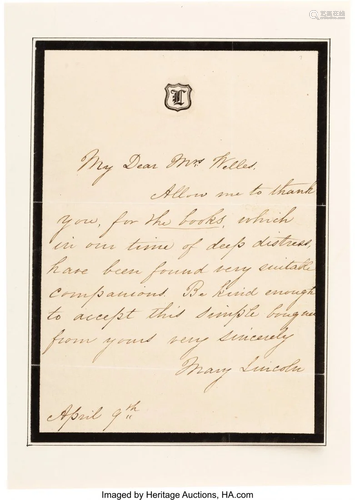 L
My Dear Mrs Welles.
Allow me to thank
you, for the books, which
in our time of deep distress,
have been found very suitable
companions. Be kind enough
to accept this simple bouquet
from yours very sincerely
Mary Lincoln
April 9th
Imaged by Heritage Auctions, HA.com